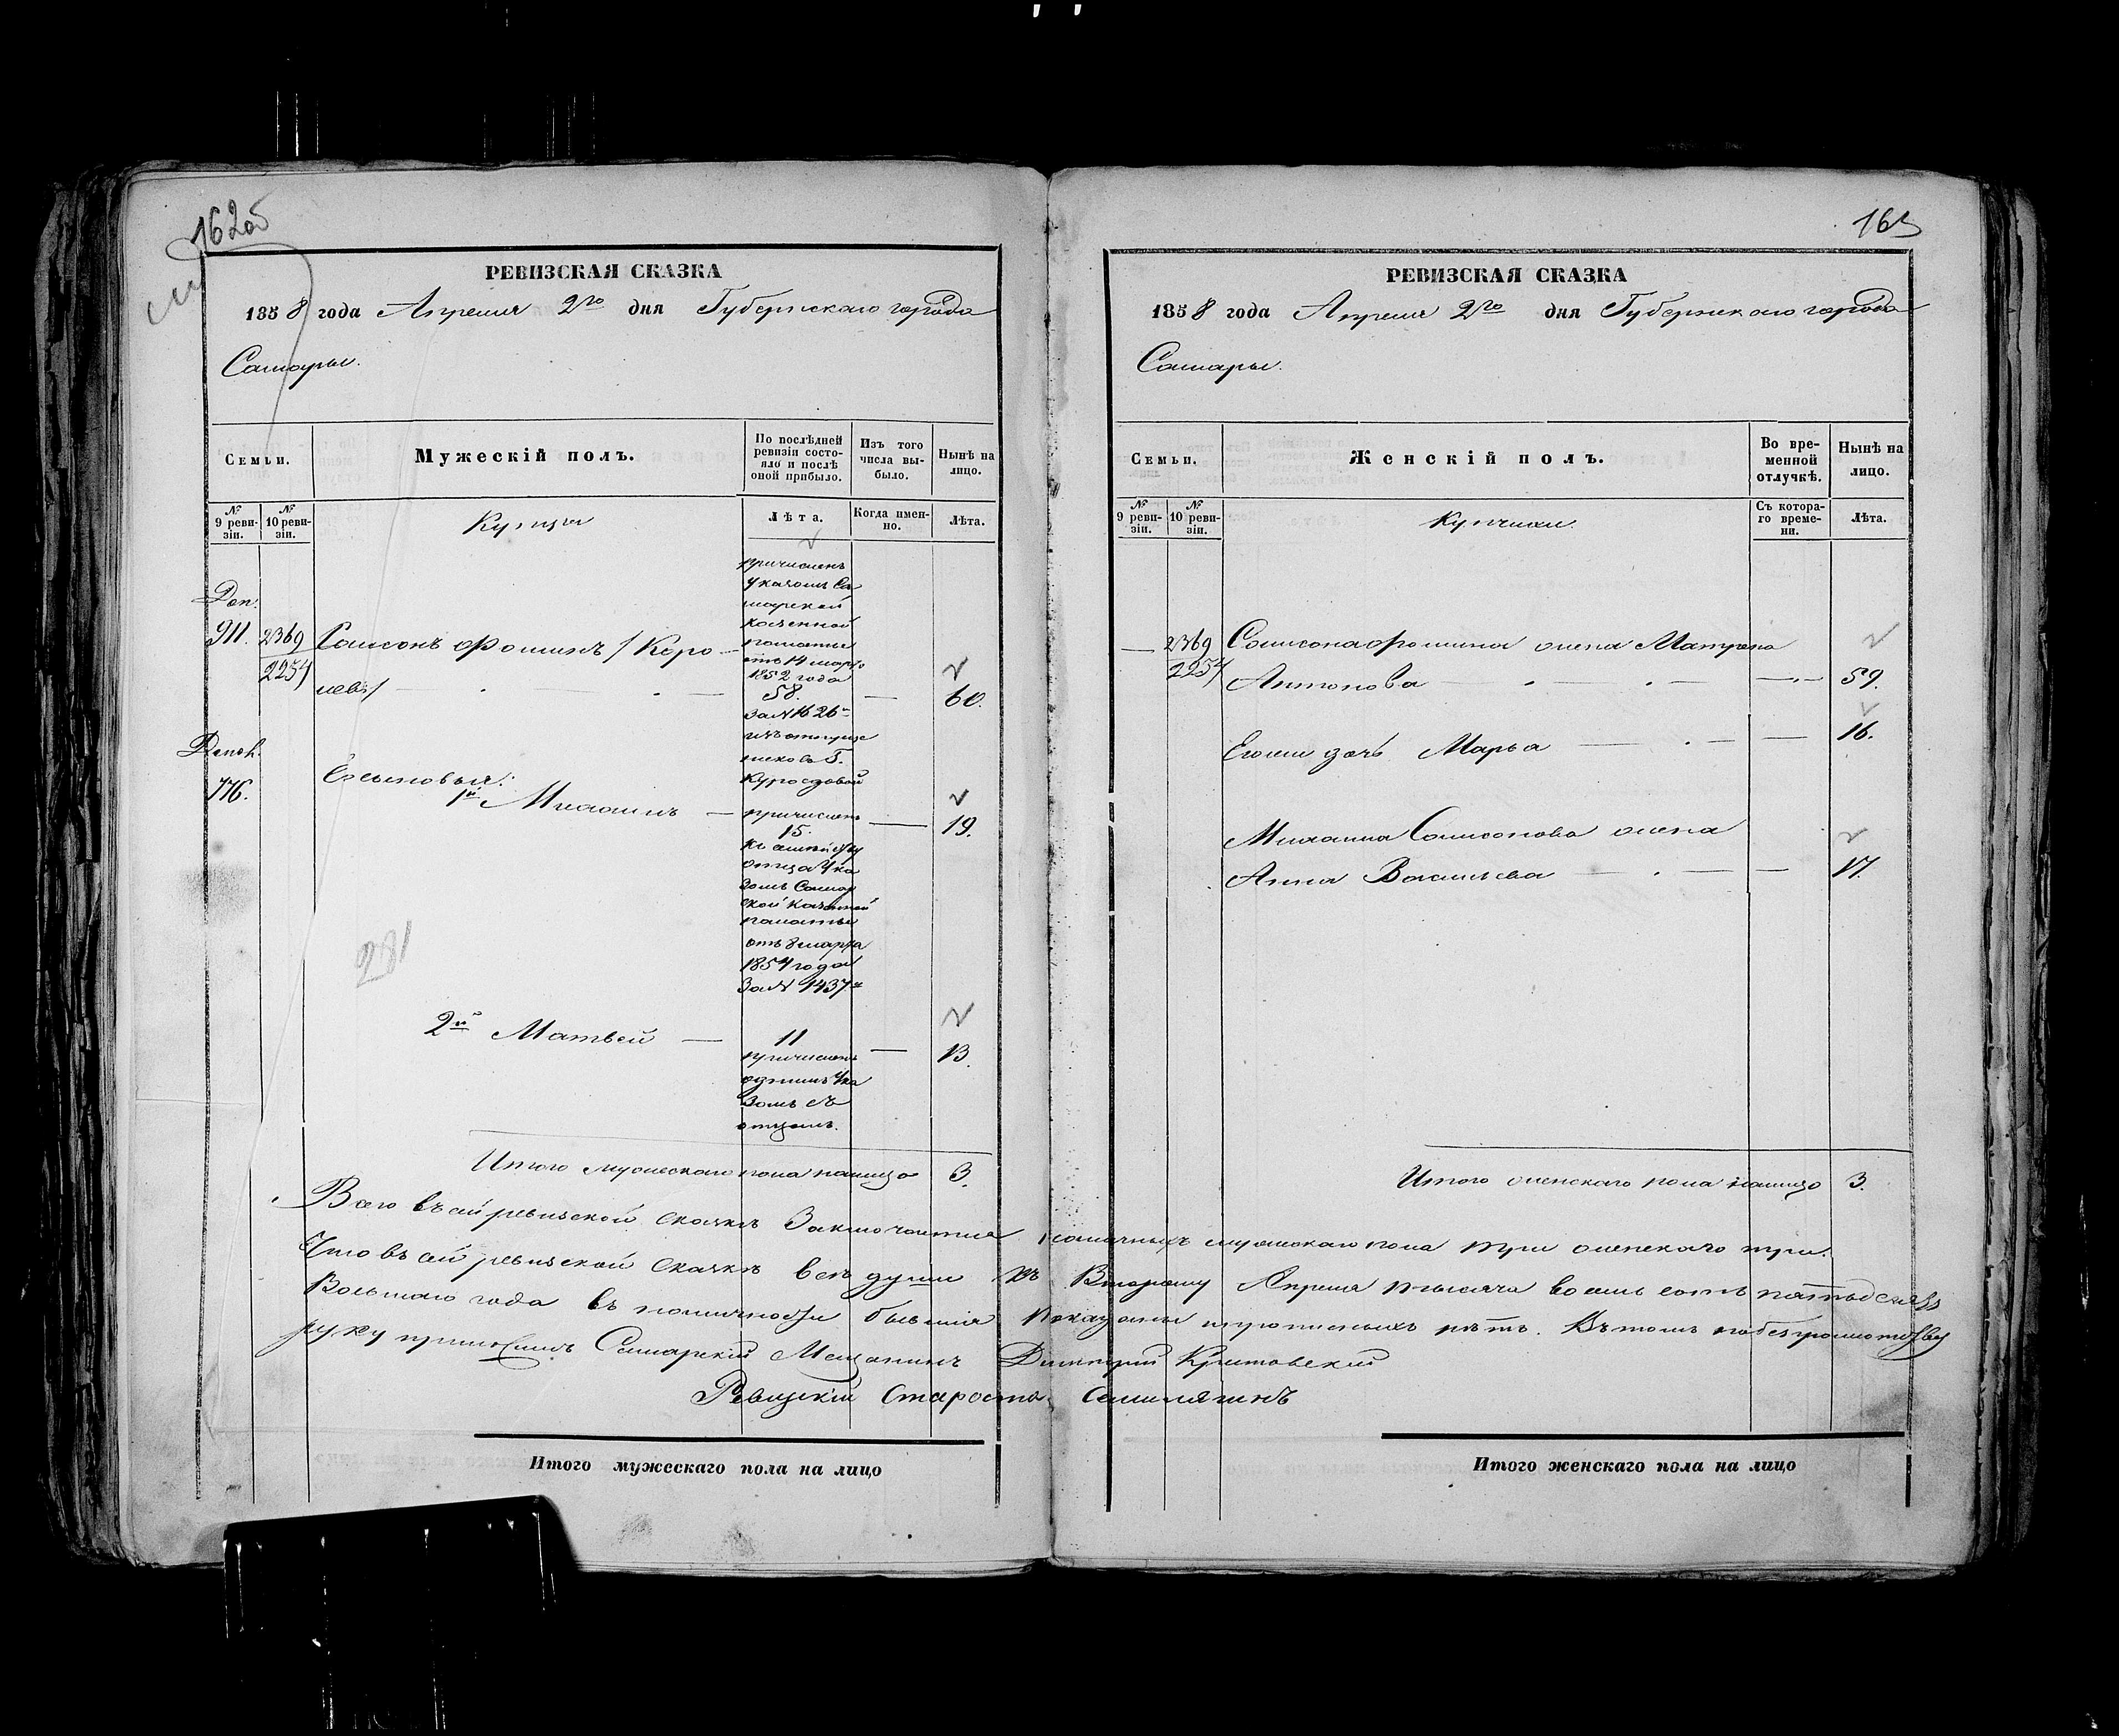 162об
РЕВИЗСКАЯ СКАЗКА
1858 года Апреля 2го дня Губернскаго города
Самары.
Семьи.
Мужескій полъ.
По послѣдней ревизіи состояло и послѣ оной прибыло.
Изъ того числа выбыло.
Нынѣ на лицо.
№ 9 ревизіи.
№ 10 ревизіи.
Купцы
Лѣта.
Когда именно.
Лѣта.
Доп.
911.
2369
2254
Самсонъ Фоминъ /Коро
левъ/
причисленъ
указомъ Са
марской
казенной
палаты
отъ 14 марта
1852 года
58.
за № 1626
изъ отпуще
никовъ Г.
Куроедовой
60.
776.
Его сыновья:
1й Михаилъ
причисленъ
15.
къ семейству
отца ука
зомъ Самар
ской казенной
палаты
отъ 8 марта
1854 года
за № 1437
19.
281
2й Матвей
11
причисленъ
однимъ ука
зомъ съ
отцомъ.
13.
Итого мужескаго пола налицо 3.
163
РЕВИЗСКАЯ СКАЗКА
1858 года Апреля 2го дня Губернскаго города
Самары.
Семьи.
Женскій полъ.
Во временной отлучкѣ.
Нынѣ на лицо.
№ 9 ревизіи.
№ 10 ревизіи.
Купчихи.
Съ котораго времени.
Лѣта.
2369
2254
Самсона Фомина жена Матрена
Антонова 59.
Его же дочь Марья 16.
Михаила Самсонова жена
Анна Васильева 17.
Итого женскаго пола налицо 3.
Всего въ сей ревизской сказкѣ заключается наличныхъ мужескаго пола три женскаго три.
Что въ сей ревизской сказкѣ все души къ Второму Апреля тысяча восемь сотъ пятьдесятъ
Восьмаго года въ наличности бывшія показаны и прописныхъ нѣтъ. Въ томъ по безграмотству
руку приложилъ Самарскій Мещанинъ Дмитрій
Ревизскій Староста
Итого мужескаго пола на лицо
Итого женскаго пола на лицо